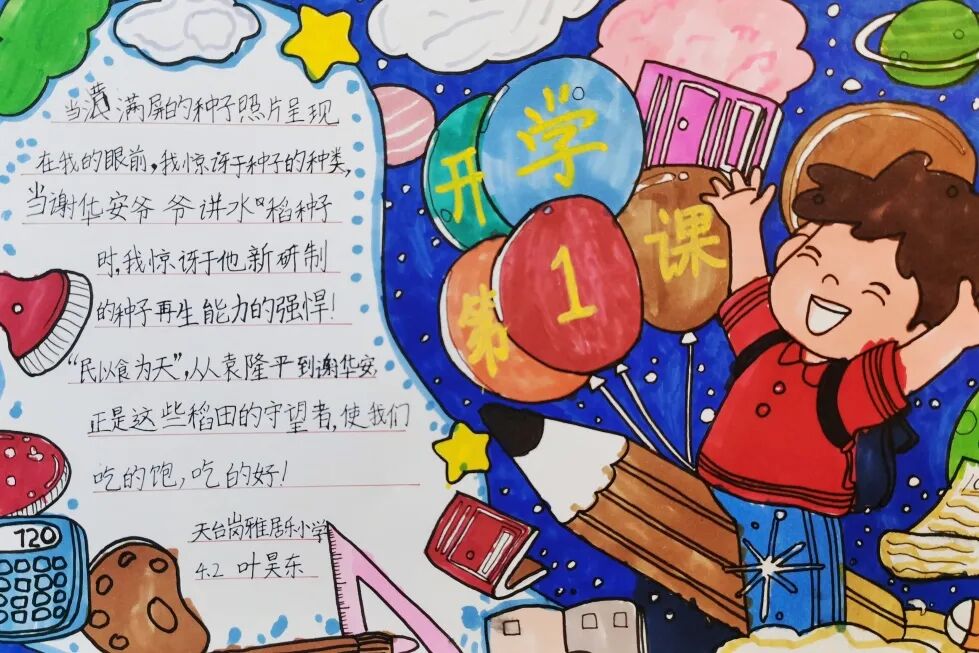 当满满屏的种子照片呈现
在我的眼前,我惊讶于种子的种类,
当谢华安爷爷讲水稻种子
时,我惊讶于他新研制
的种子再生能力的强悍!
“民以食为天”,从袁隆平到谢华安
正是这些稻田的守望者,使我们
吃的饱,吃的好!
天台岗雅居乐小学
4.2 叶昊东
开学
第1课
120